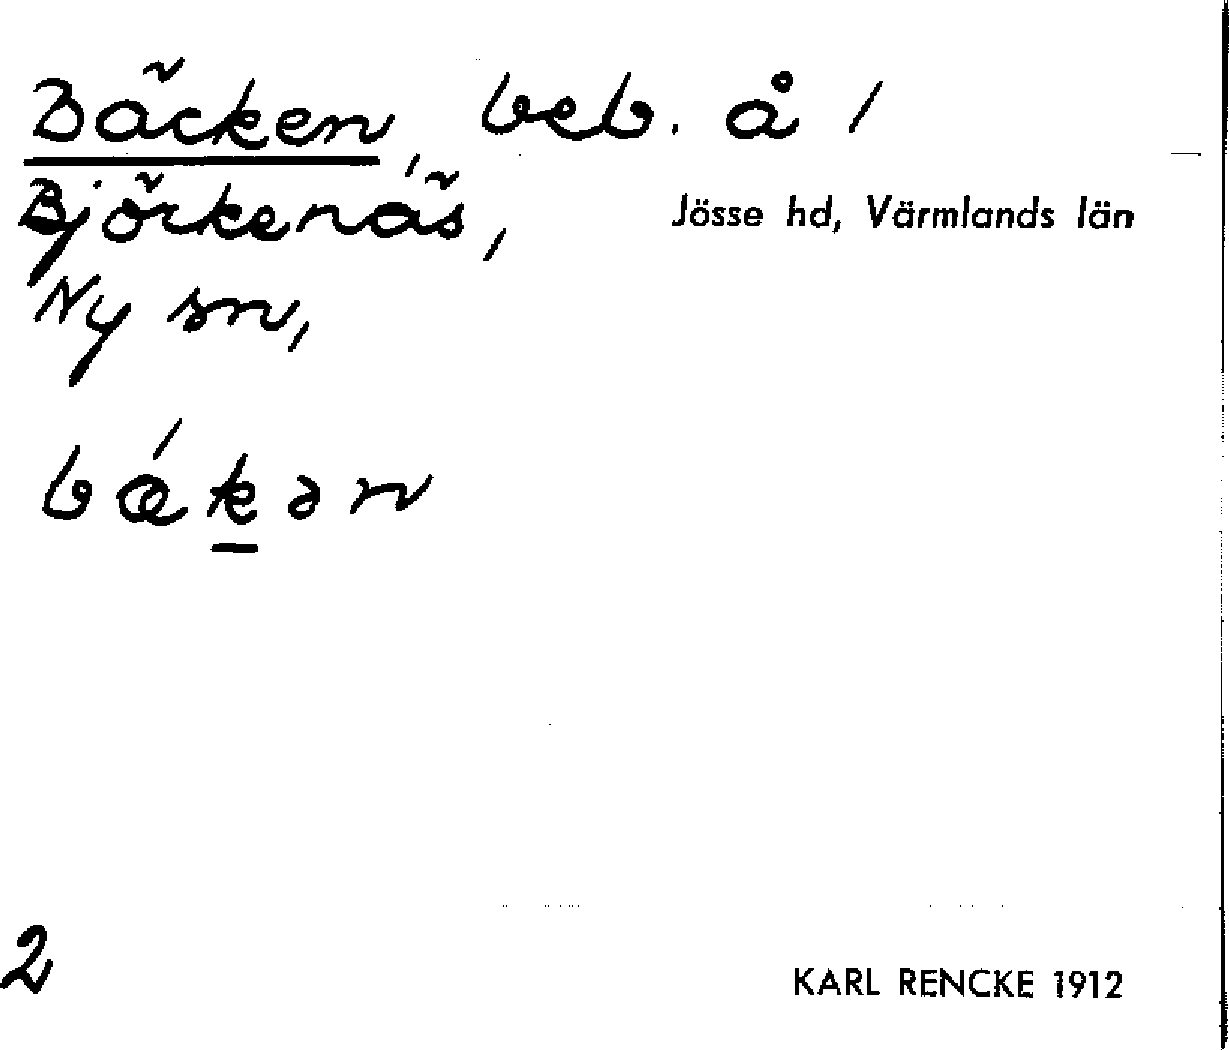 Bäcken, beb. å /
Björkenäs,
Jösse hd, Värmlands län
Ny sn,
bǽkən
2
KARL RENCKE 1912